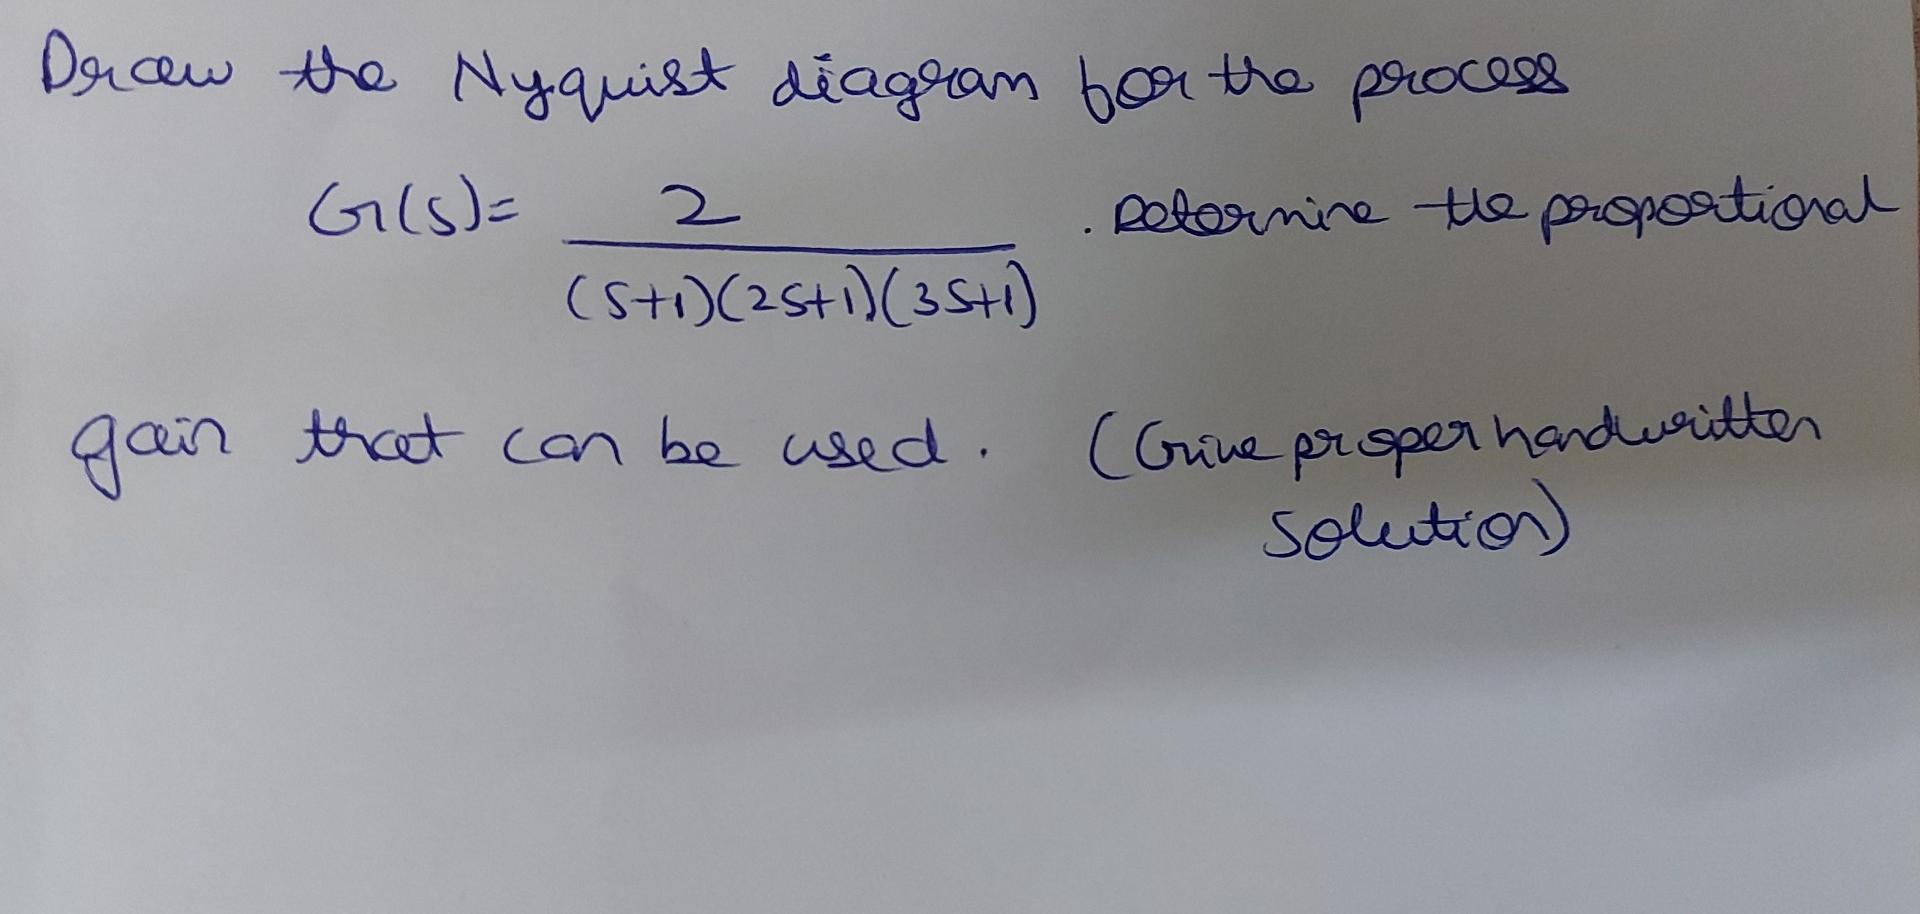 Draw the Nyquist diagram for the process
G(s)= 2 / (s+1)(2s+1)(3s+1) . Determine the proportional
gain that can be used. (Give proper handwritten
solution)